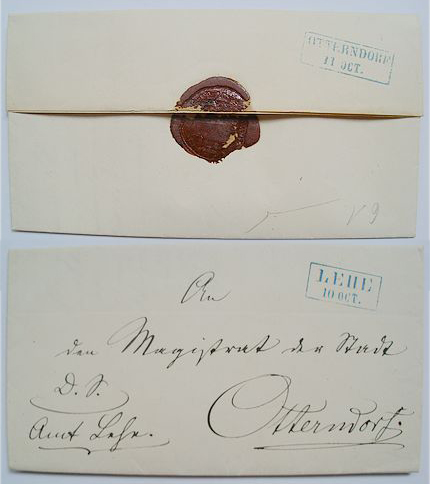 OTTERNDORF
11 OCT.
V9
LEHE
10 OCT.
An
den Magistrat der Stadt
D. S.
Otterndorf.
Amt Lehe.